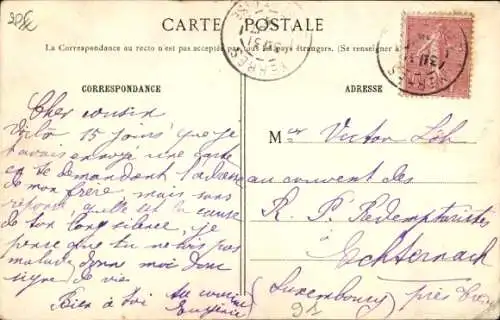 CARTE POSTALE
La Correspondance au recto n'est pas acceptée par tous les pays étrangers. (Se renseigner à
CORRESPONDANCE
ADRESSE
Cher cousin
Voilà 15 jours que je
t'avais envoyé une carte
en te demandant l'adresse
de mon frère mais sans
réponse quelle est la cause
de ton long silence, je
pense que tu ne sois pas
malade donne moi donc
signe de vie
Bien à toi
Eugénie
Mr Victor
au couvent des
R. P. Redemptoristes
Echternach
(Luxembourg)